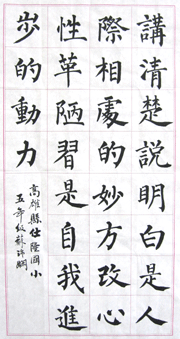 講清楚說明白是人
際相處的妙方改心
性革陋習是自我進
步的動力
高雄縣仕隆國小
五年級蘇